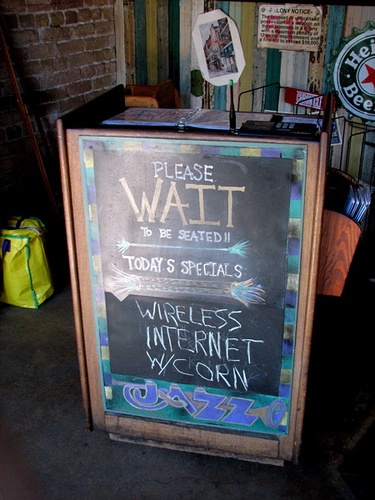 FELONY NOTICE
Hei
PLEASE
WAIT
TO BE SEATED!!
TODAY'S SPECIALS
WIRELESS
INTERNET
W/CORN
JAZZ